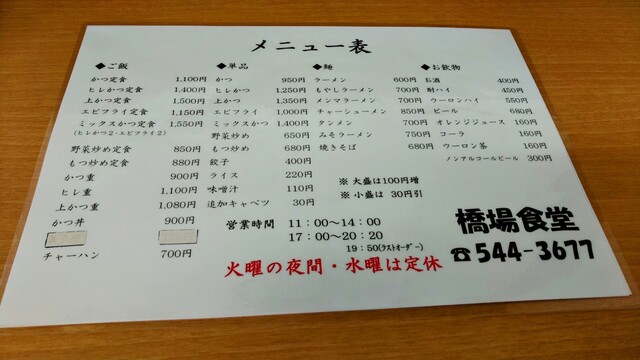 メニュー表
◆ご飯
かつ定食 1,100円
ヒレかつ定食 1,400円
上かつ定食 1,500円
エビフライ定食 1,150円
ミックスかつ定食 1,550円
(ヒレかつ２・エビフライ２)
野菜炒め定食 850円
もつ炒め定食 880円
かつ重 900円
ヒレ重 1,100円
上かつ重 1,080円
かつ丼 900円
チャーハン 700円
◆単品
かつ 950円
ヒレかつ 1,250円
上かつ 1,350円
エビフライ 1,000円
ミックスかつ 1,400円
野菜炒め 650円
もつ炒め 680円
餃子 400円
ライス 220円
味噌汁 110円
追加キャベツ 30円
◆麺
ラーメン 600円
もやしラーメン 700円
メンマラーメン 700円
チャーシューメン 850円
タンメン 700円
みそラーメン 750円
焼きそば 680円
※ 大盛は100円増
※ 小盛は 30円引
◆お飲物
お酒 400円
酎ハイ 450円
ウーロンハイ 550円
ビール 680円
オレンジジュース 160円
コーラ 160円
ウーロン茶 160円
ノンアルコールビール 300円
営業時間 11：00～14：00
17：00～20：20
19：50(ラストオーダー)
火曜の夜間・水曜は定休
橋場食堂
☎544-3677